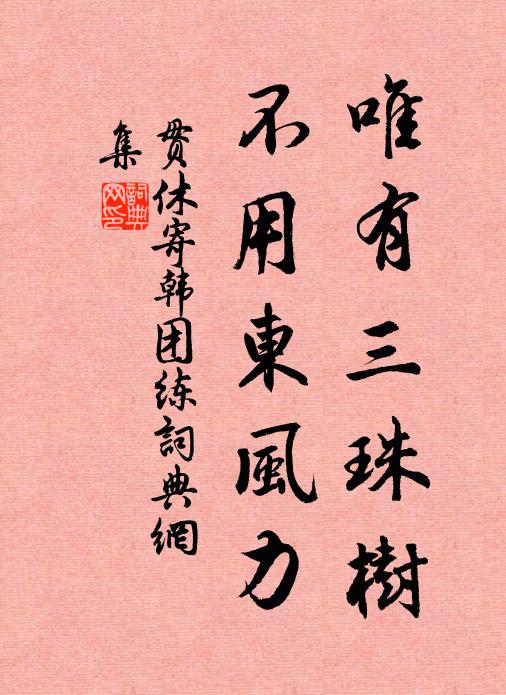 唯有三珠樹
不用東風力
贯休寄韩团练詞典網
集
詞典网印